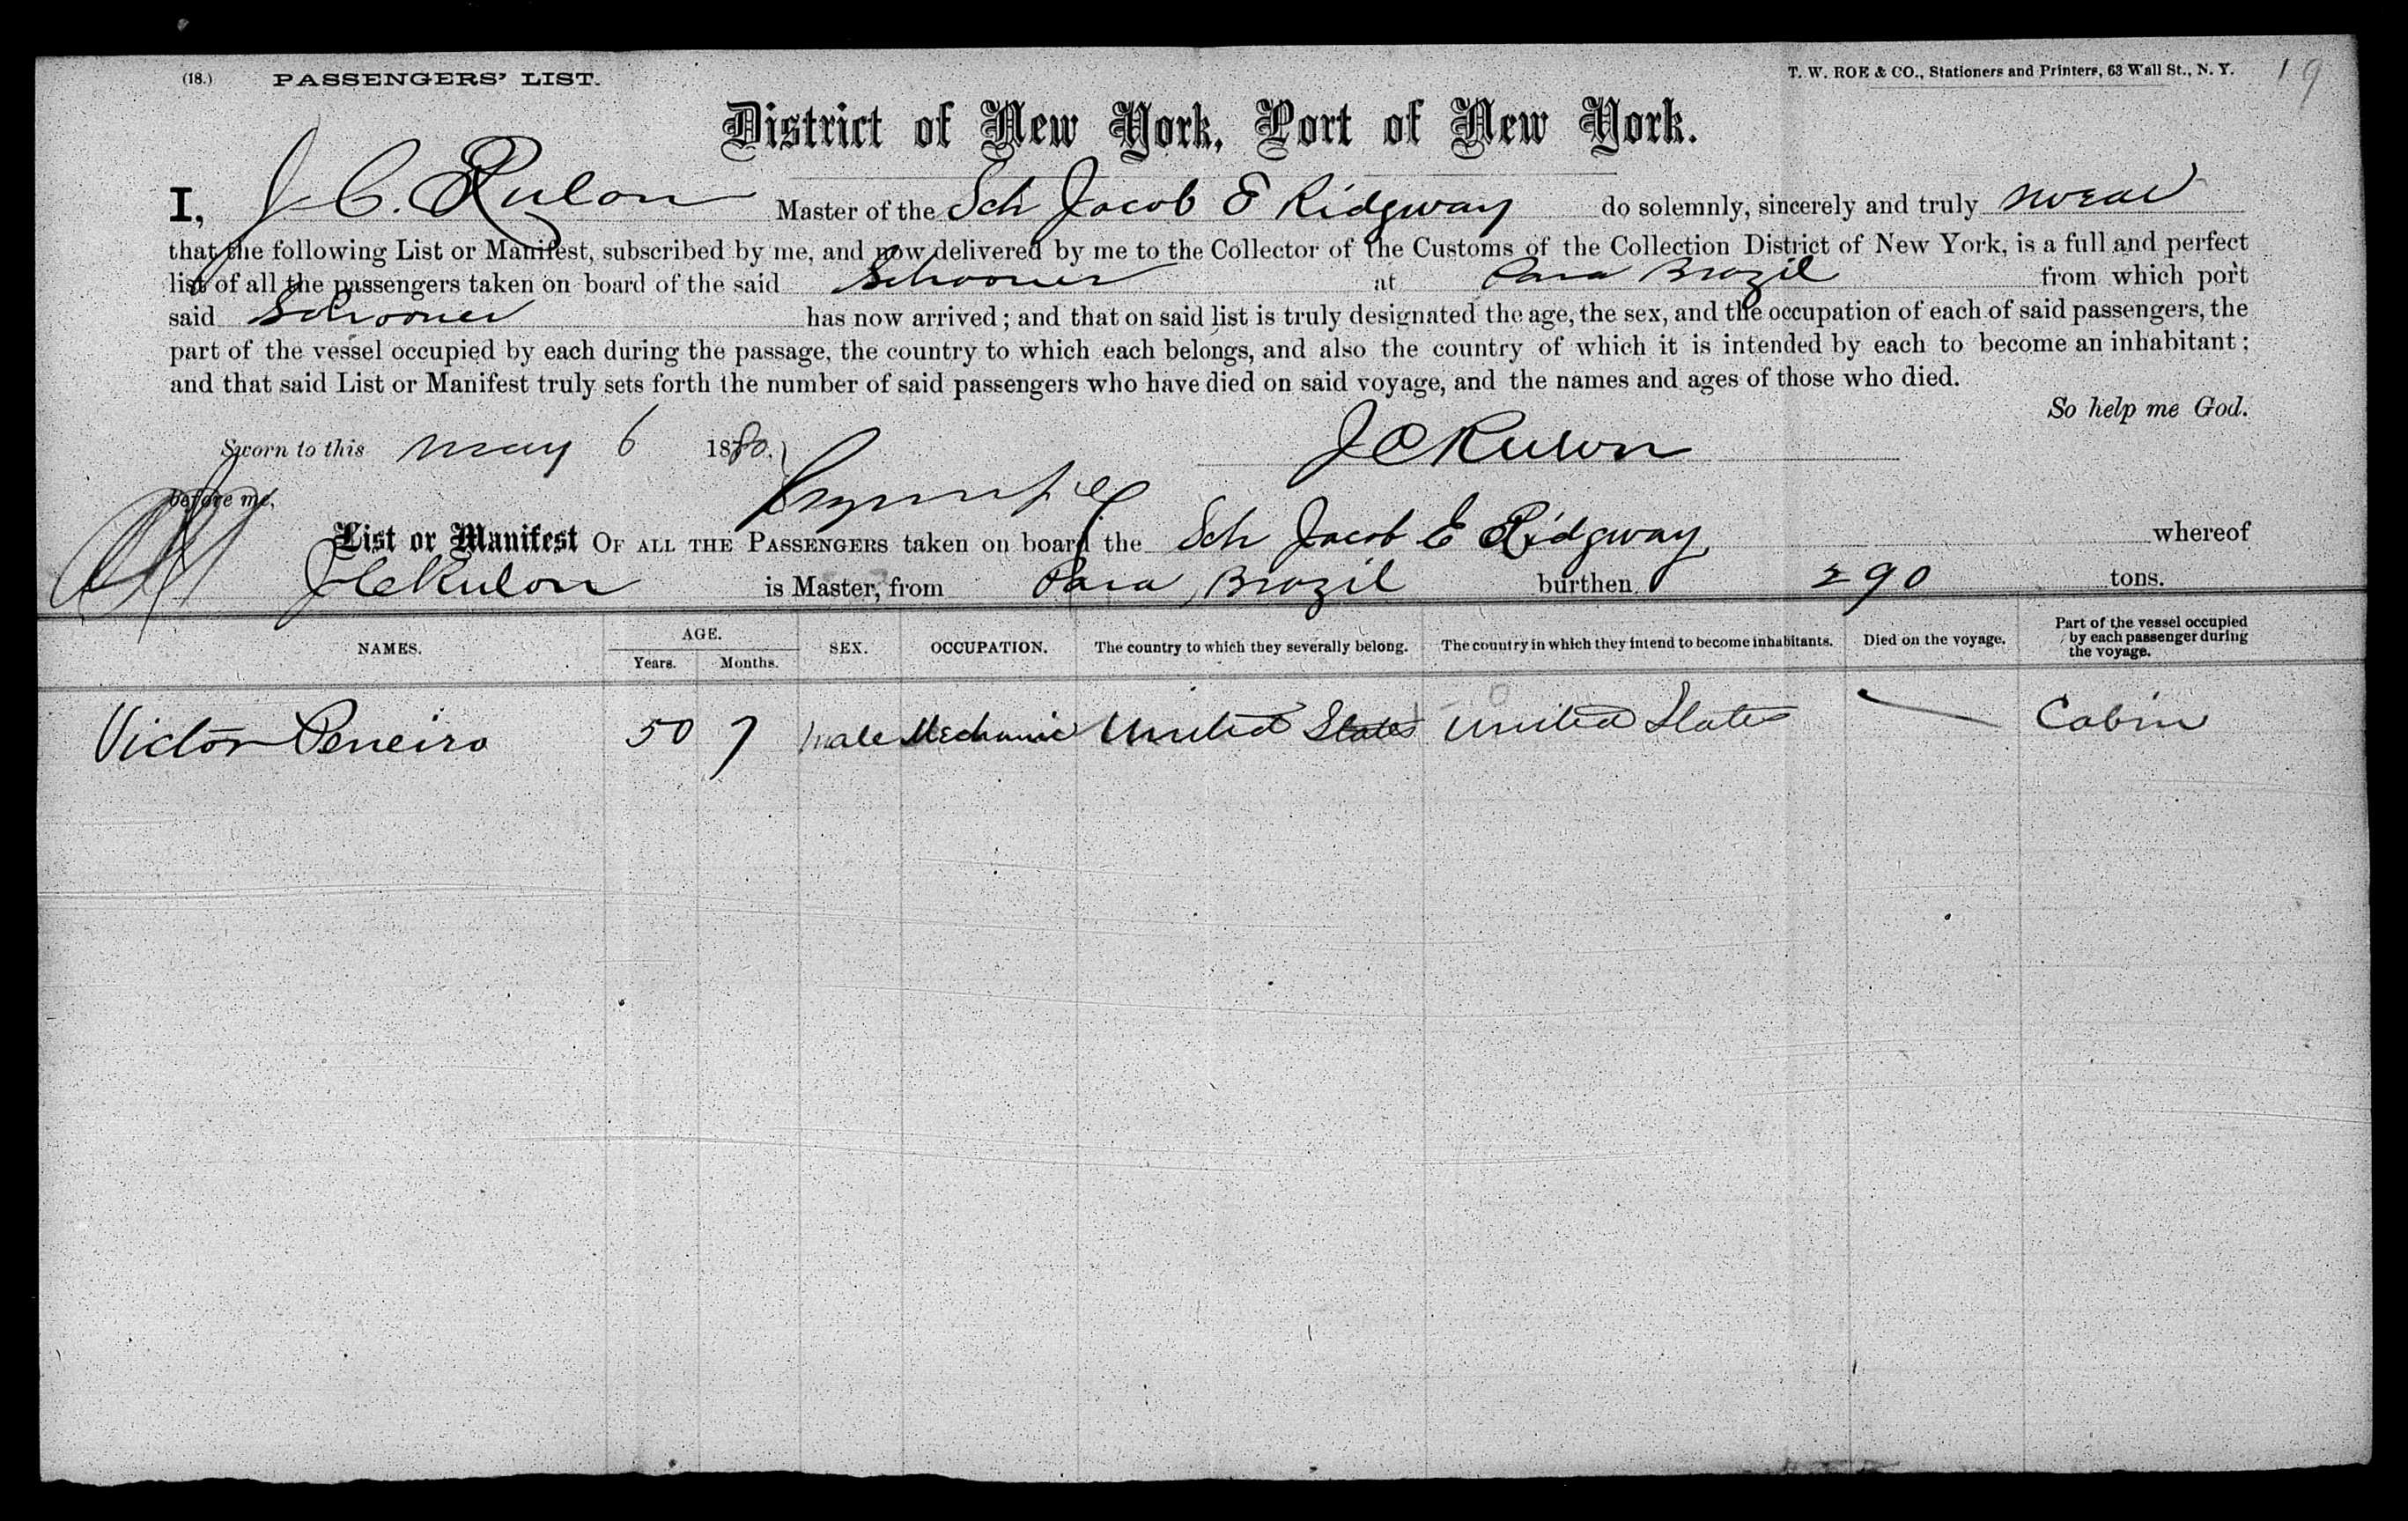 (18.) PASSENGERS' LIST. T. W. ROE & CO., Stationers and Printers, 63 Wall St., N. Y. 19
District of New York, Port of New York.
I, J. C. Rulon Master of the Sch Jacob E Ridgway do solemnly, sincerely and truly swear
that the following List or Manifest, subscribed by me, and now delivered by me to the Collector of the Customs of the Collection District of New York, is a full and perfect
list of all the passengers taken on board of the said Schooner at Para Brazil from which port
said Schooner has now arrived; and that on said list is truly designated the age, the sex, and the occupation of each of said passengers, the
part of the vessel occupied by each during the passage, the country to which each belongs, and also the country of which it is intended by each to become an inhabitant;
and that said List or Manifest truly sets forth the number of said passengers who have died on said voyage, and the names and ages of those who died.
So help me God.
Sworn to this May 6 1880. J C Rulon
before me,
List or Manifest OF ALL THE PASSENGERS taken on board the Sch Jacob E Ridgway whereof
J C Rulon is Master, from Para, Brazil burthen 290 tons.
NAMES. AGE. Years. Months. SEX. OCCUPATION. The country to which they severally belong. The country in which they intend to become inhabitants. Died on the voyage. Part of the vessel occupied by each passenger during the voyage.
Victor Peneiro 50 7 male Mechanic United States United States Cabin